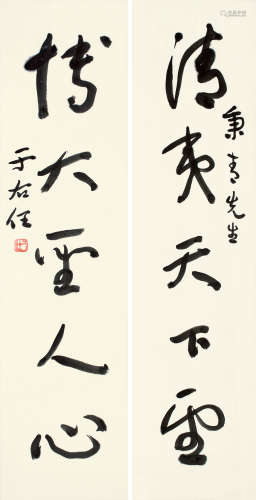 清夷天下望
秉青先生
博大聖人心
于右任